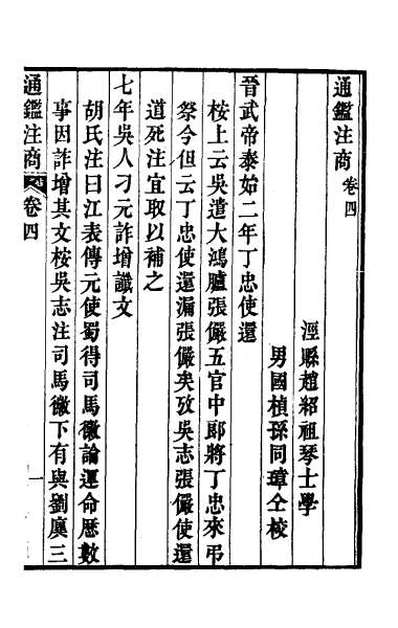 通鑑注商 卷四
涇縣趙紹祖琴士學
男國楨孫同璋仝校
晉武帝泰始二年丁忠使還
桉上云吳遣大鴻臚張儼五官中郎將丁忠來弔
祭今但云丁忠使還漏張儼矣攷吳志張儼使還
道死注宜取以補之
七年吳人刁元詐增讖文
胡氏注曰江表傳元使蜀得司馬徽論運命厯數
事因詐增其文桉吳志注司馬徽下有與劉廙三
通鑑注商 卷四 一